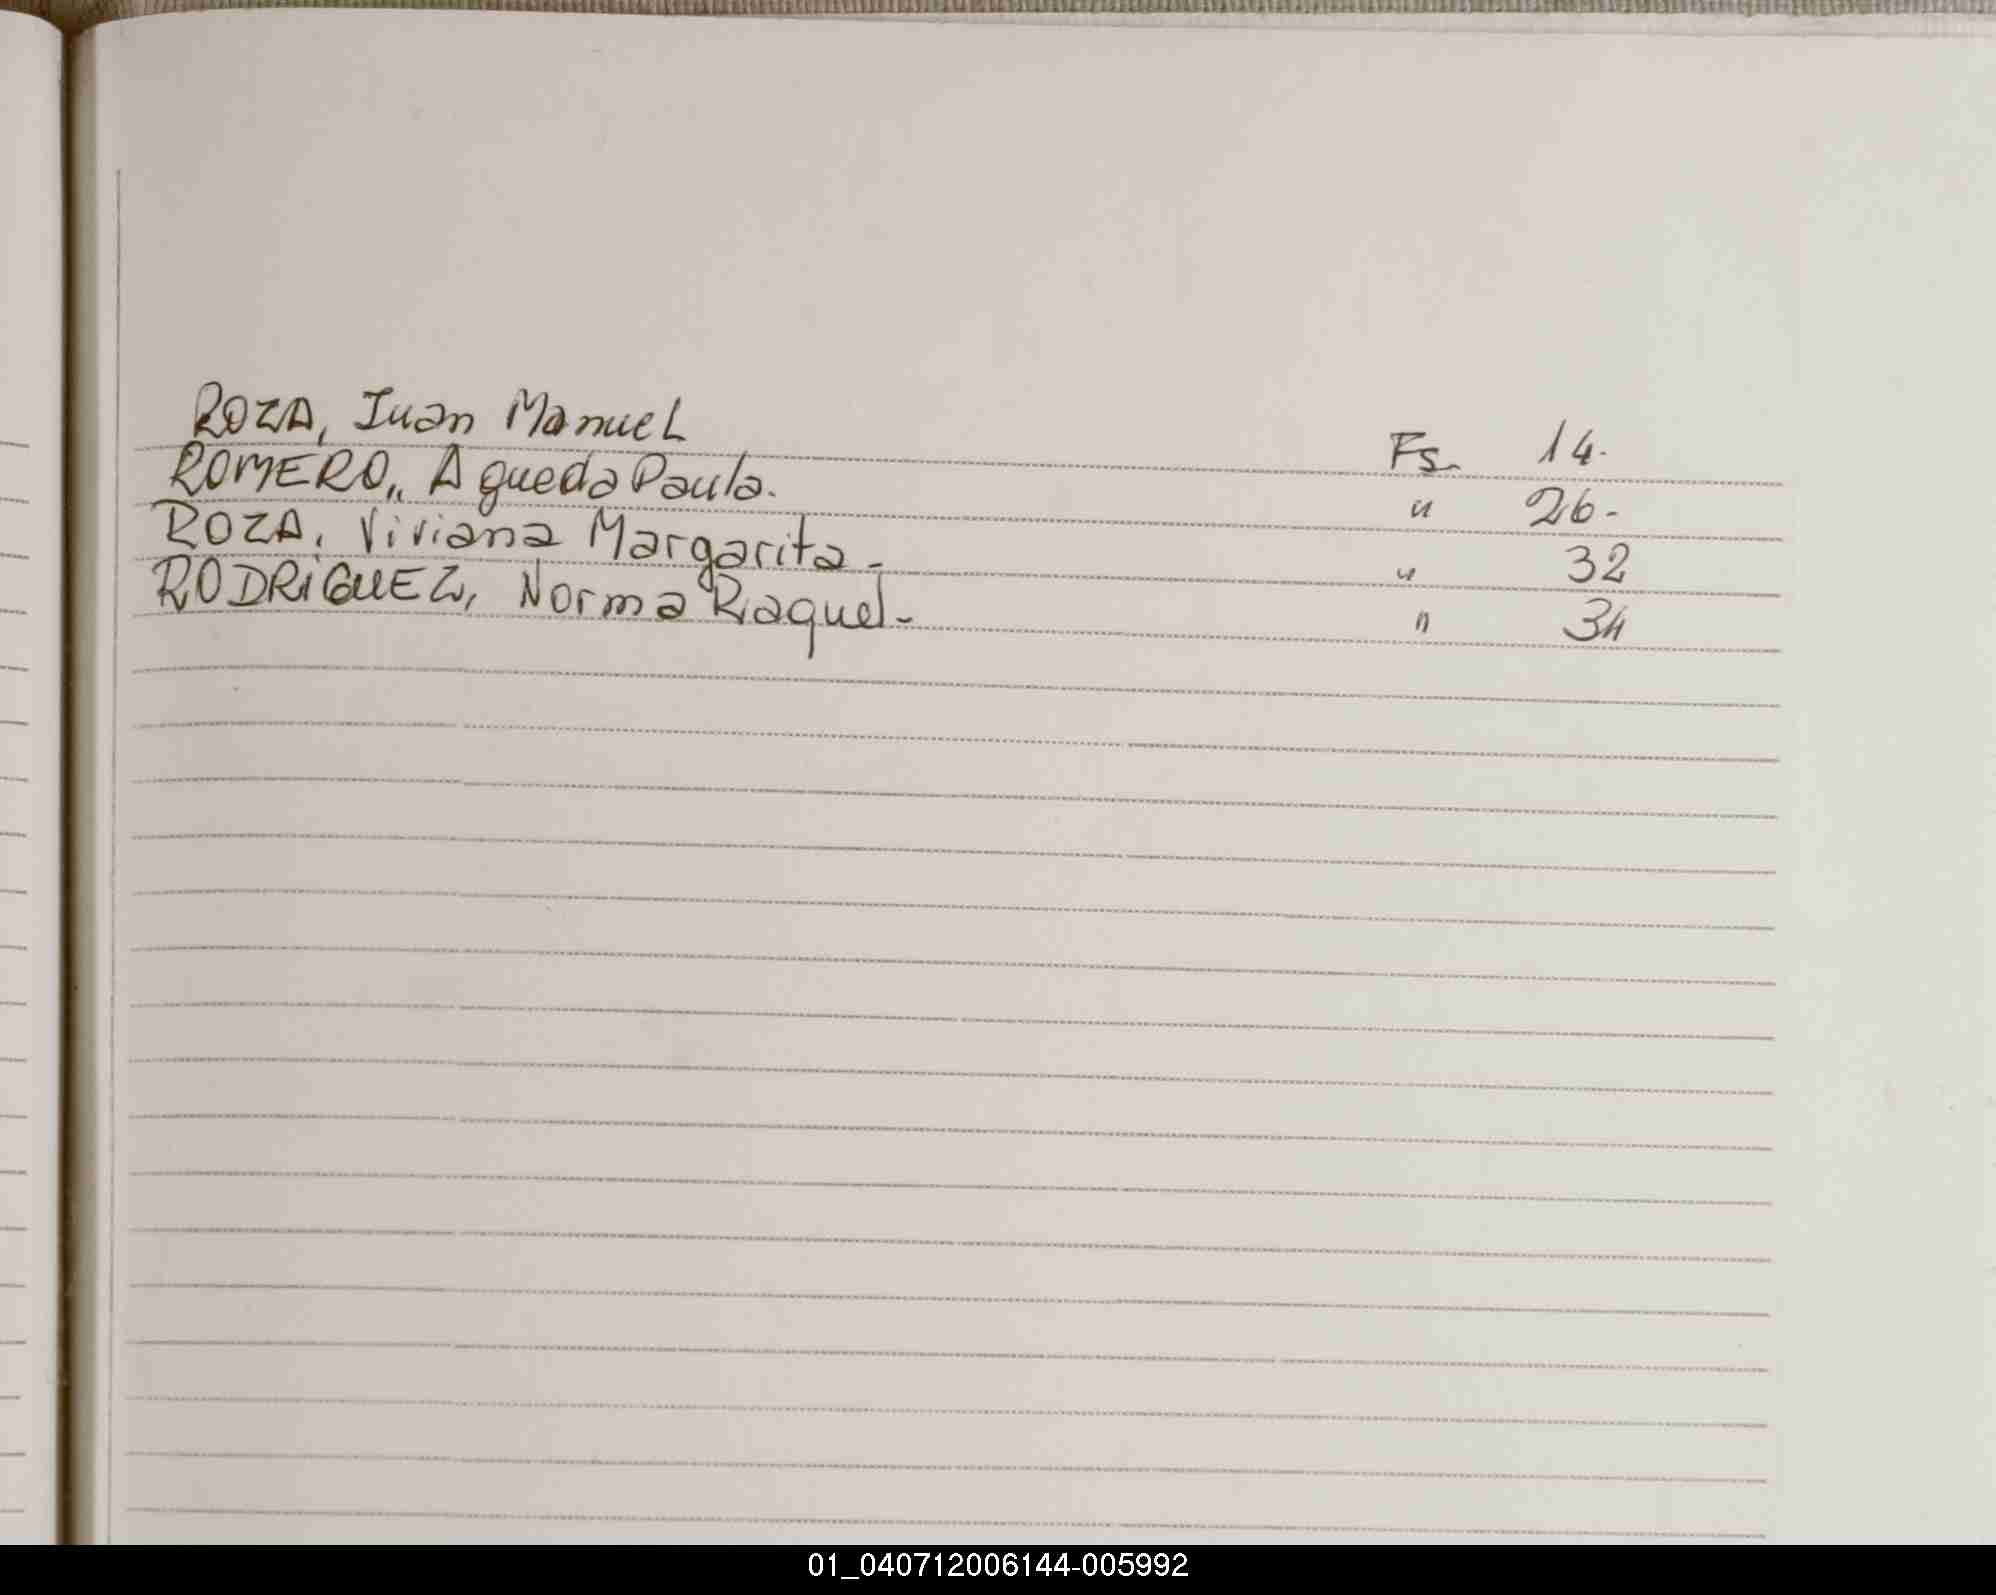 ROZA, Juan Manuel Fs. 14.
ROMERO,, Agueda Paula. " 26-
ROZA, Viviana Margarita - " 32
RODRIGUEZ, Norma Raquel - " 34
01_040712006144-005992